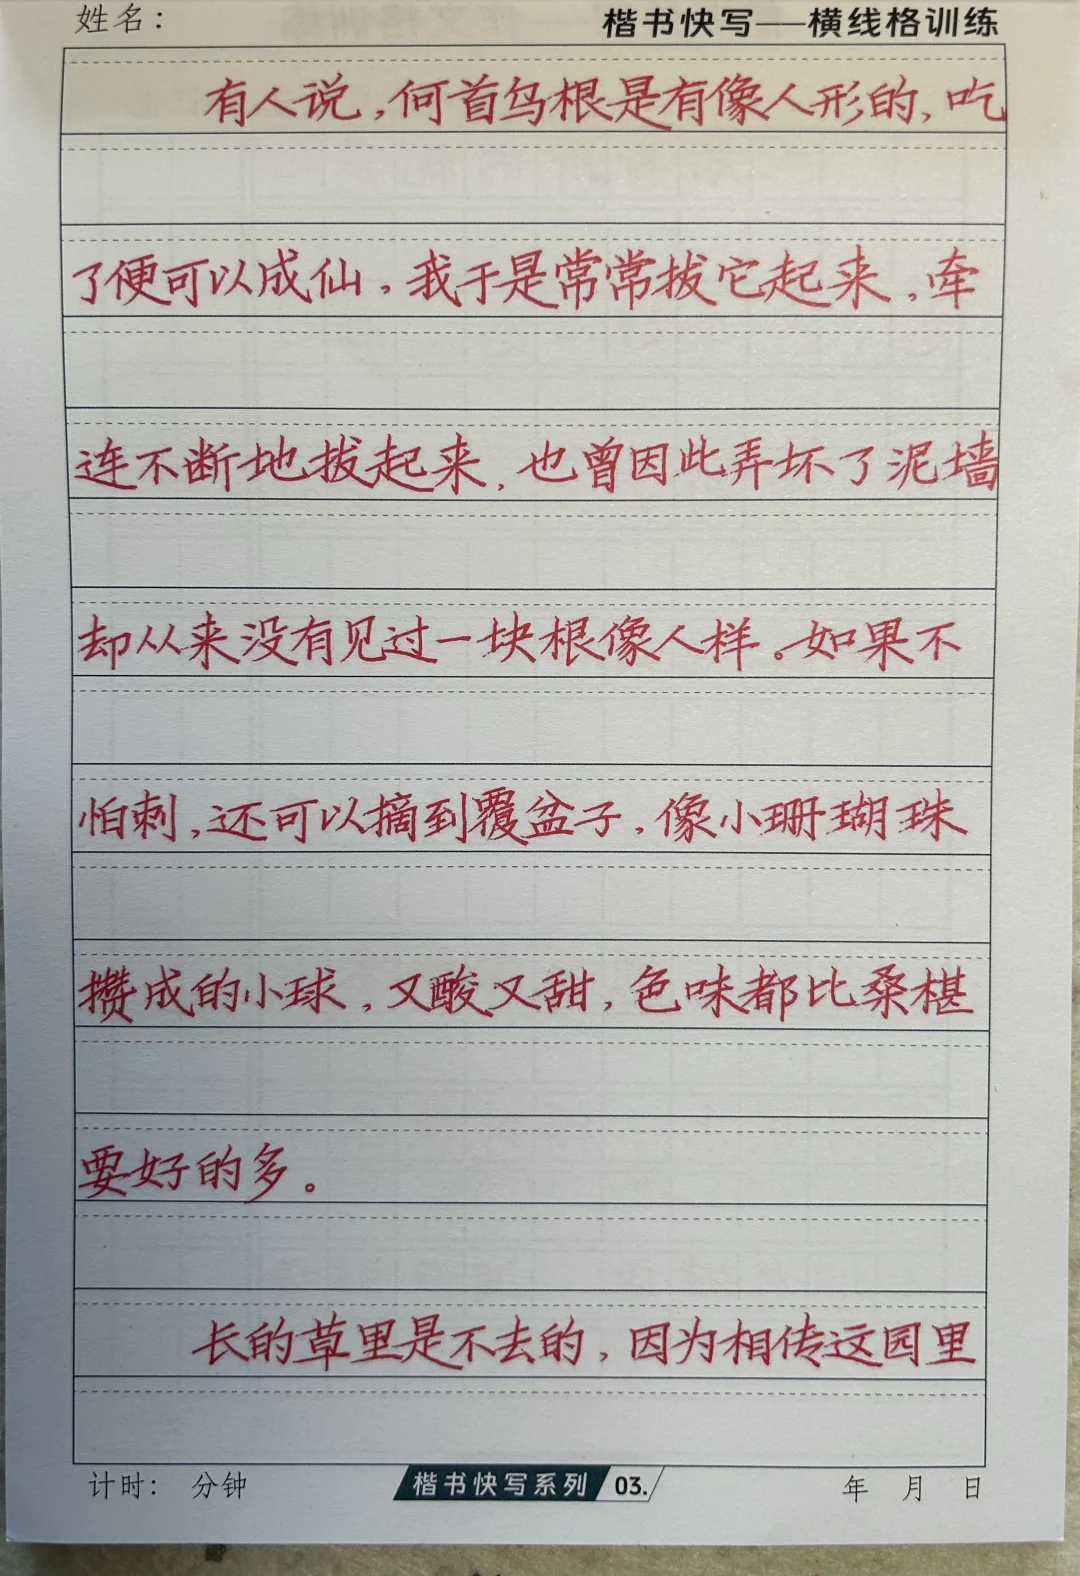 姓名：
楷书快写——横线格训练
有人说，何首乌根是有像人形的，吃
了便可以成仙，我于是常常拔它起来，牵
连不断地拔起来，也曾因此弄坏了泥墙
却从来没有见过一块根像人样。如果不
怕刺，还可以摘到覆盆子，像小珊瑚珠
攒成的小球，又酸又甜，色味都比桑椹
要好的多。
长的草里是不去的，因为相传这园里
计时： 分钟
楷书快写系列 03.
年 月 日